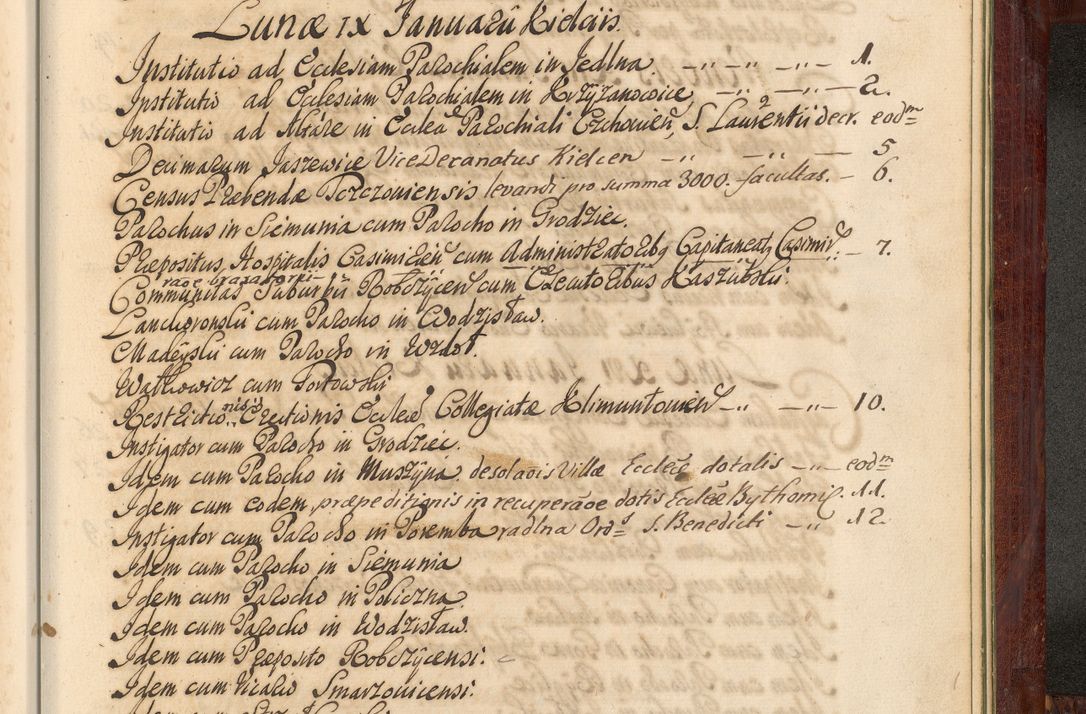 Lunæ IX Januarii Kielciis.
Institutio ad Ecclesiam Parochialem in Jedlna -„- -„- -„- 1.
Institutio ad Ecclesiam Parochialem in Krzyżanowice -„- -„- 2.
Institutio ad Altare in Ecclea Parochiali Czchovien, S. Laurentii decr. eodm
Decimarum Jaszewice ViceDecanatus Kielcen -„- -„- 5
Census Præbendæ Torczoviensis levandi pro summa 3000. facultas. - 6.
Parochus in Siemunia cum Parocho in Grodziec.
Præpositus Hospitalis Casimirien cum Administratorbq Capitaneatq Casimir. - 7.
Communitas Suburbii Robczycen cum Executoribus Kaszubskii
Lanckoronskii cum Parocho in Wodzisław.
Madeyskii cum Parocho in Wzdoł.
Watkowicz cum Portowskii
Restrictionis Erectionis Eccleæ Collegiatæ Klimuntovien -„- -„- 10.
Instigator cum Parocho in Grodziec.
Idem cum Parocho in Muszyna desolaois Villæ Eccleæ dotalis -„- eodm
Idem cum eodem, præpeditionis in recuperaoe dotis Eccleæ Bythomi. 11.
Instigator cum Parocho in Poremba radlna Ord. S. Benedicti -„- 12
Idem cum Parocho in Siemunia
Idem cum Parocho in Policzna.
Idem cum Parocho in Wodzisław.
Idem cum Præposito Robczycensi.
Idem cum Vicario Smarzovicensi.